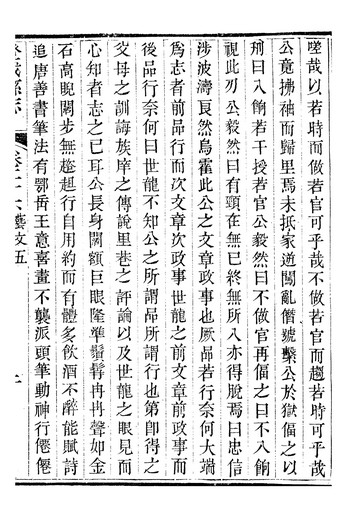 墜哉以若時而做若官可乎哉不做若官而趨若時可乎哉
公竟拂袖而歸里焉未抵家道闖亂僭號繫公於獄偪之以
刑曰入餉若干授若官公毅然曰不做官再偪之曰不入餉
視此刃公毅然曰有頸在無已終無所入亦得脫焉曰忠信
涉波濤良然烏霍此公之文章政事也厥品若行奈何大端
為志者前品行而次文章次政事世龍之前文章前政事而
後品行奈何曰世龍不知公之所謂品所謂行也第卽得之
父母之訓誨族庠之傳說里巷之評論以及世龍之眼見而
心知者志之已耳公長身闊額巨眼隆準鬚髯冉冉聲如金
石高睨闊步無趦趄行自用約而有體多飲酒不醉能賦詩
追唐善書筆法有鄂岳王意喜畫不襲派頭筆動神行僊僊
縣志
卷二十六藝文五